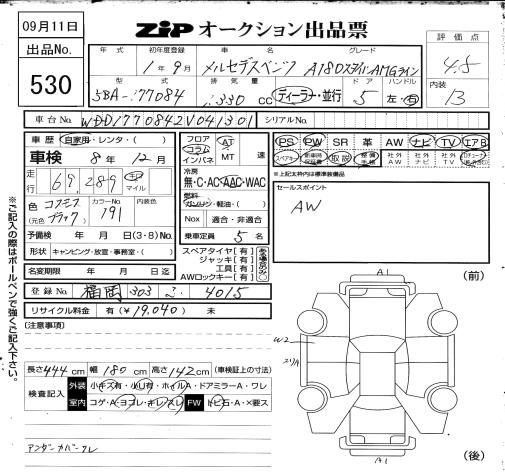 09月11日
ZIP オークション出品票
出品No.
530
年式 初年度登録 車名 グレード
1年9月 メルセデスベンツ A180 スタイル AMGライン
型式 排気量 ドア ハンドル
5BA-177084 1330 CC ディーラー・並行 5 左・右
評価点
4.5
内装
B
車台No. WDD1770842V041301 シリアルNo.
車歴 自家用・レンタ・( )
車検 8年12月
走行 69,289 キロ マイル
色 コスモスブラック カラーNo. 191 内装色
(元色 )
予備検 年 月 日(3・8)No.
形状 キャンピング・放宣・事務室・( )
名変期限 年 月 日迄
フロア コラム インパネ AT MT 速
冷房
無・C・AC・AAC・WAC
燃料
ガソリン・軽油・( )
Nox 適合・非適合
乗車定員 5名
スペアタイヤ[有]
ジャッキ[有]
工具[有]
AWロックキー[有]
PS PW SR 革 AW ナビ TV エアB
スペアキー 新車時保証書 取説 整備手帳 社外AW 社外ナビ 社外TV
※上記太枠内は標準装備品
セールスポイント
AW
登録No. 福岡 303 4015
リサイクル料金 有(¥19,040) 未
(注意事項)
長さ444cm 幅180cm 高さ142cm (車検証上の寸法)
検査記入 外装 小キズ有・小凹有・ホイルA・ドアミラーA・ワレ
室内 コゲA・ヨゴレ・キレ・スレ FW トビ石・A・X要ス
アンダーカバークレ
※ご記入の際はボールペンで強くご記入下さい。
(前)
A1
W2
A1
(後)